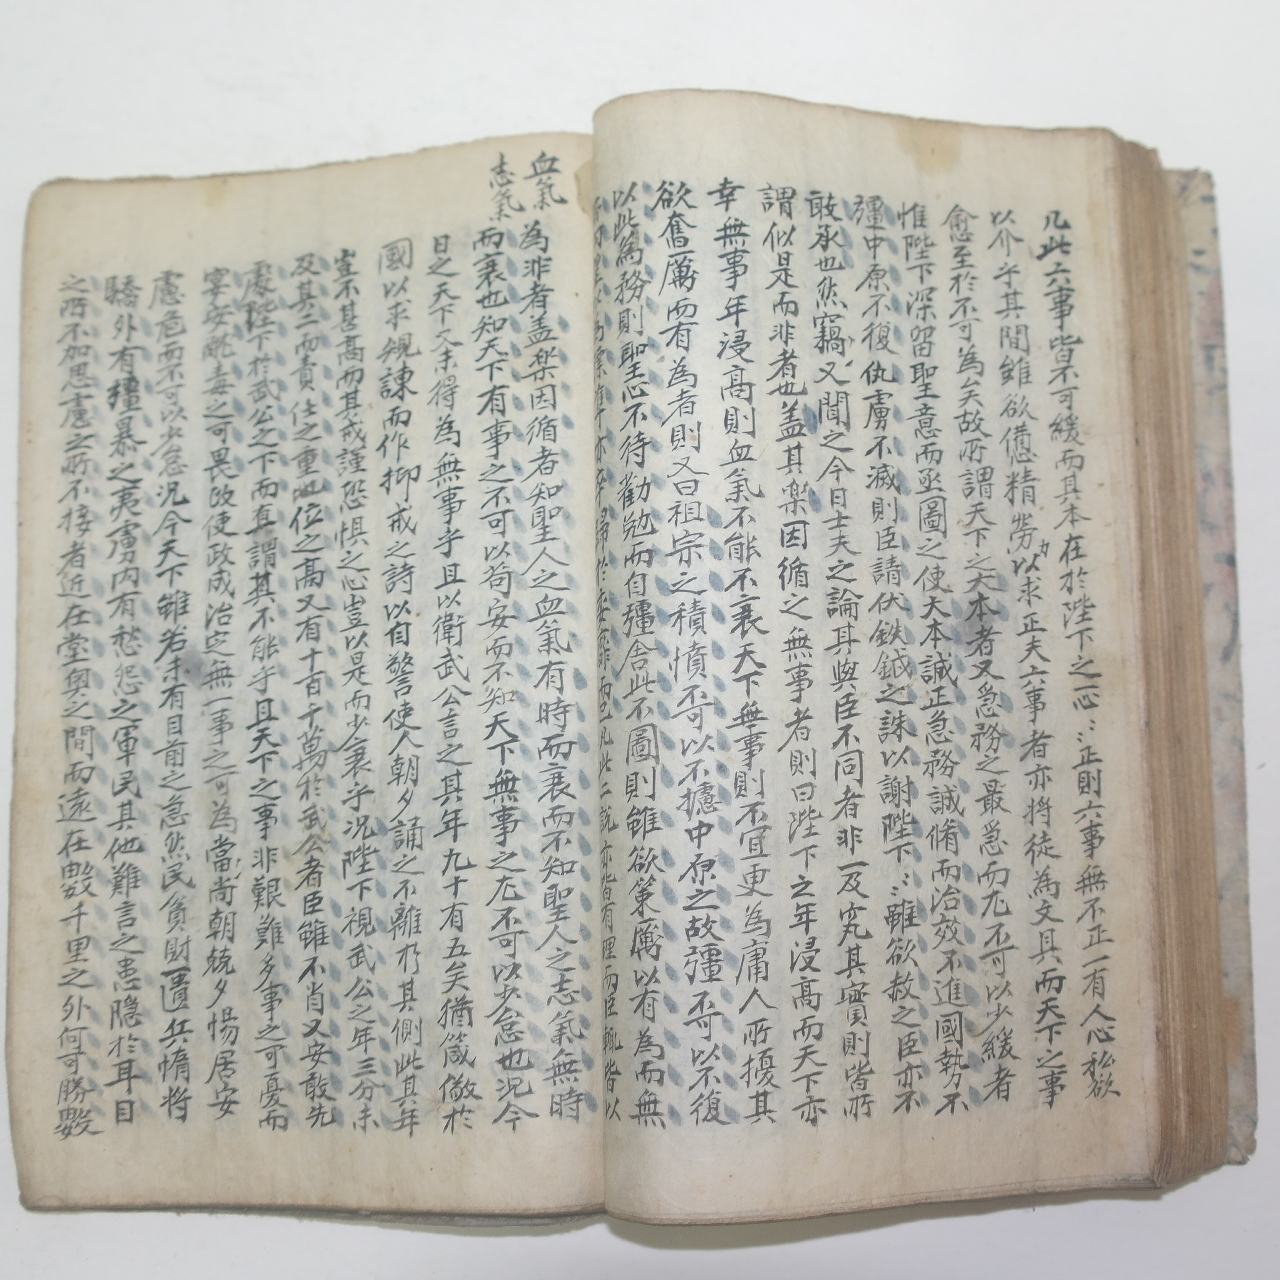 凡此六事皆不可緩而其本在於陛下之一心〻正則六事無不正一有人心私欲
以介乎其間雖欲憊精勞力以求正夫六事者亦將徒為文具而天下之事
愈至於不可為矣故所謂天下之大本者又急務之最急而尤不可以少緩者
惟陛下深留聖意而亟圖之使大本誠正急務誠脩而治效不進國勢不
彊中原不復仇虜不滅則臣請伏鈇鉞之誅以謝陛下〻雖欲赦之臣亦不
敢承也然竊又聞之今日士夫之論其與臣不同者非一及究其實則皆所
謂似是而非者也盖其樂因循之無事者則曰陛下之年浸高而天下亦
幸無事年浸高則血氣不能不衰天下無事則不宜更為庸人所擾其
欲奮厲而有為者則又曰祖宗之積憤不可以不攄中原之故彊不可以不復
以此為務則聖心不待勸勉而自彊舍此不圖則雖欲策厲以有為而無
亦 歸於 凡此二說亦皆有理而臣輒皆以
血氣
志氣
為非者盖樂因循者知聖人之血氣有時而衰而不知聖人之志氣無時
而衰也知天下有事之不可以苟安而不知天下無事之尤不可以少怠也況今
日之天下又未得為無事乎且以衛武公言之其年九十有五矣猶箴儆於
國以求規諫而作抑戒之詩以自警使人朝夕誦之不離於其側此其年
豈不甚高而其戒謹恐惧之心豈以是而少衰乎況陛下視武公之年三分未
及其二而責任之重地位之高又有十百千萬於武公者臣雖不肖又安敢先
處陛下於武公之下而直謂其不能乎且天下之事非艱難多事之可憂而
宴安酖毒之可畏政使政成治定無一事之可為當尚朝兢夕惕居安
慮危而不可以少怠況今天下雖若未有目前之急然民貧財匱兵惰將
驕外有彊暴之夷虜內有愁怨之軍民其他難言之患隐於耳目
之所不加思慮之所不接者近在堂奧之間而遠在數千里之外何可勝數